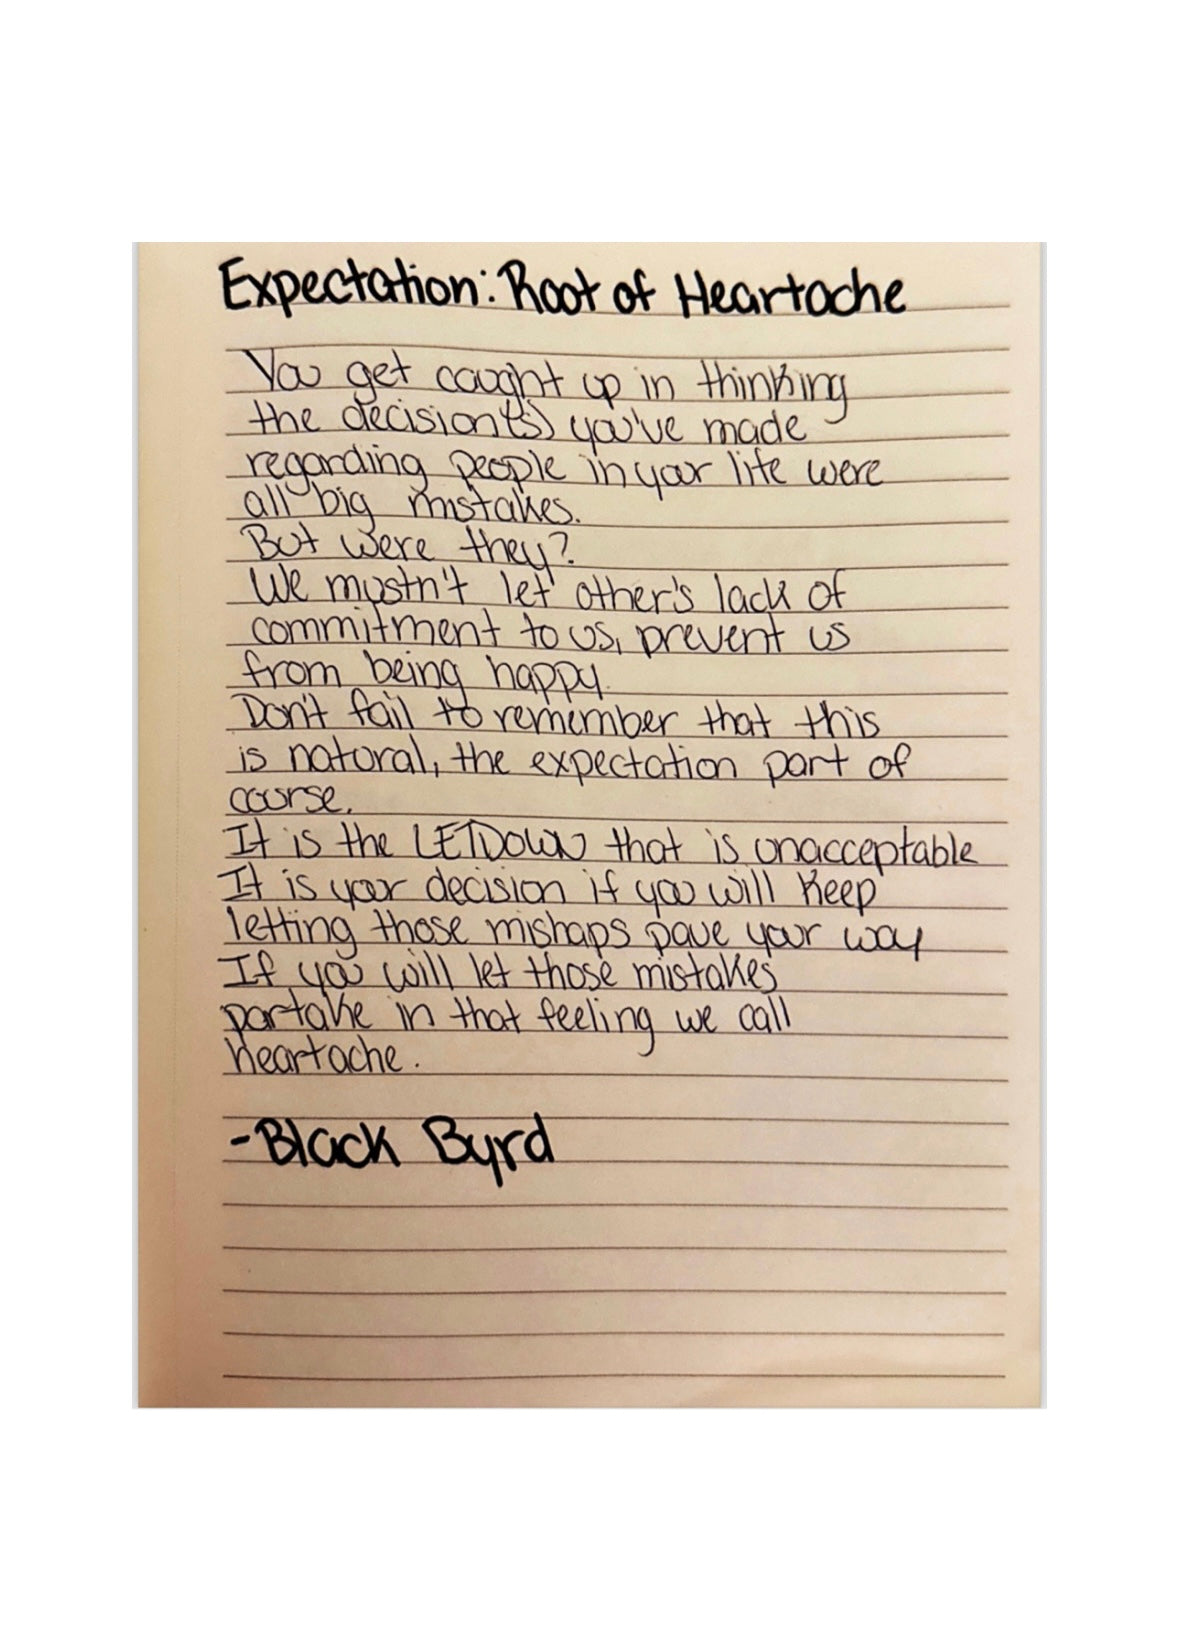 Expectation: Root of Heartache
You get caught up in thinking
the decision(s) you've made
regarding people in your life were
all big mistakes.
But were they?
We mustn't let other's lack of
commitment to us, prevent us
from being happy.
Don't fail to remember that this
is natural, the expectation part of
course.
It is the LETDOWN that is unacceptable
It is your decision if you will keep
letting those mishaps pave your way
If you will let those mistakes
partake in that feeling we call
heartache.
-Black Byrd